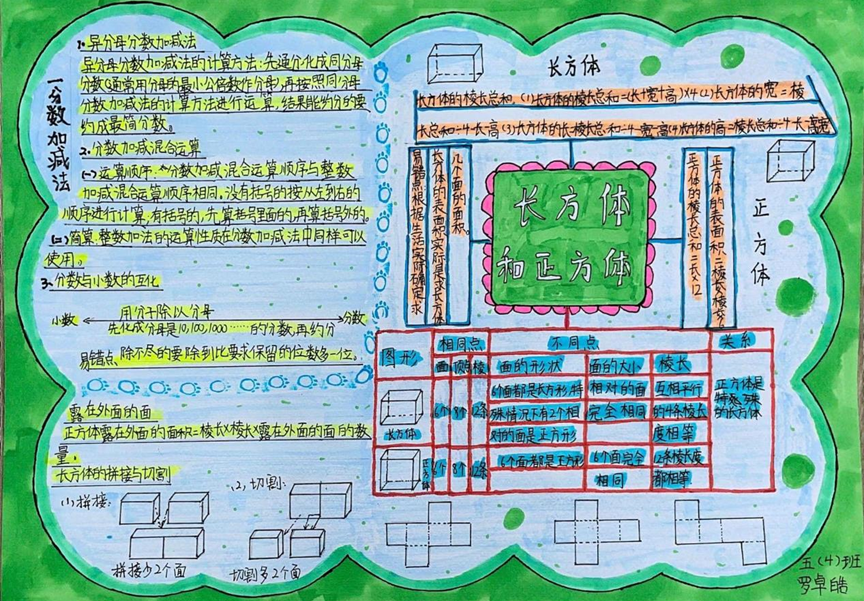 一分数加减法
1. 异分母分数加减法
异分母分数加减法的计算方法:先通分化成同分母
分数(通常用分母的最小公倍数作分母),再按照同分母
分数加减法的计算方法进行运算,结果能约分的要
约成最简分数。
2. 分数加减混合运算
(一)运算顺序:分数加减混合运算顺序与整数
加减混合运算顺序相同,没有括号的按从左到右的
顺序进行计算;有括号的,先算括号里面的,再算括号外的。
(二)简算:整数加法的运算性质在分数加减法中同样可以
使用。
3. 分数与小数的互化
用分子除以分母
小数 分数
先化成分母是10,100,1000……的分数,再约分
易错点 除不尽的要除到比要求保留的位数多一位。
露在外面的面
正方体露在外面的面积=棱长×棱长×露在外面的面的数
量。
长方体的拼接与切割
(1)拼接:
拼接少2个面
(2)切割:
切割多2个面
长方体
长方体的棱长总和:(1)长方体的棱长总和=(长+宽+高)×4(2)长方体的宽=棱
长总和÷4-长-高(3)长方体的长=棱长总和÷4-宽-高(4)长方体的高=棱长总和÷4-长-宽
易错点根据生活实际确定求
长方体的表面积实际是求长方体
几个面的面积。
长方体
和正方体
正方体的棱长总和=棱长×12
正方体的表面积=棱长×棱长×6
正方体
图形 相同点 不同点 关系
面 顶点 棱 面的形状 面的大小 棱长
长方体 6个 8个 12条
6个面都是长方形,特
殊情况下有2个相
对的面是正方形
相对的面
完全相同
互相平行
的4条棱长
度相等
正方体是
特殊的长方体
正方体 6个 8个 12条
6个面都是正方形
6个面完全
相同
12条棱长度
都相等
五(4)班
罗卓皓